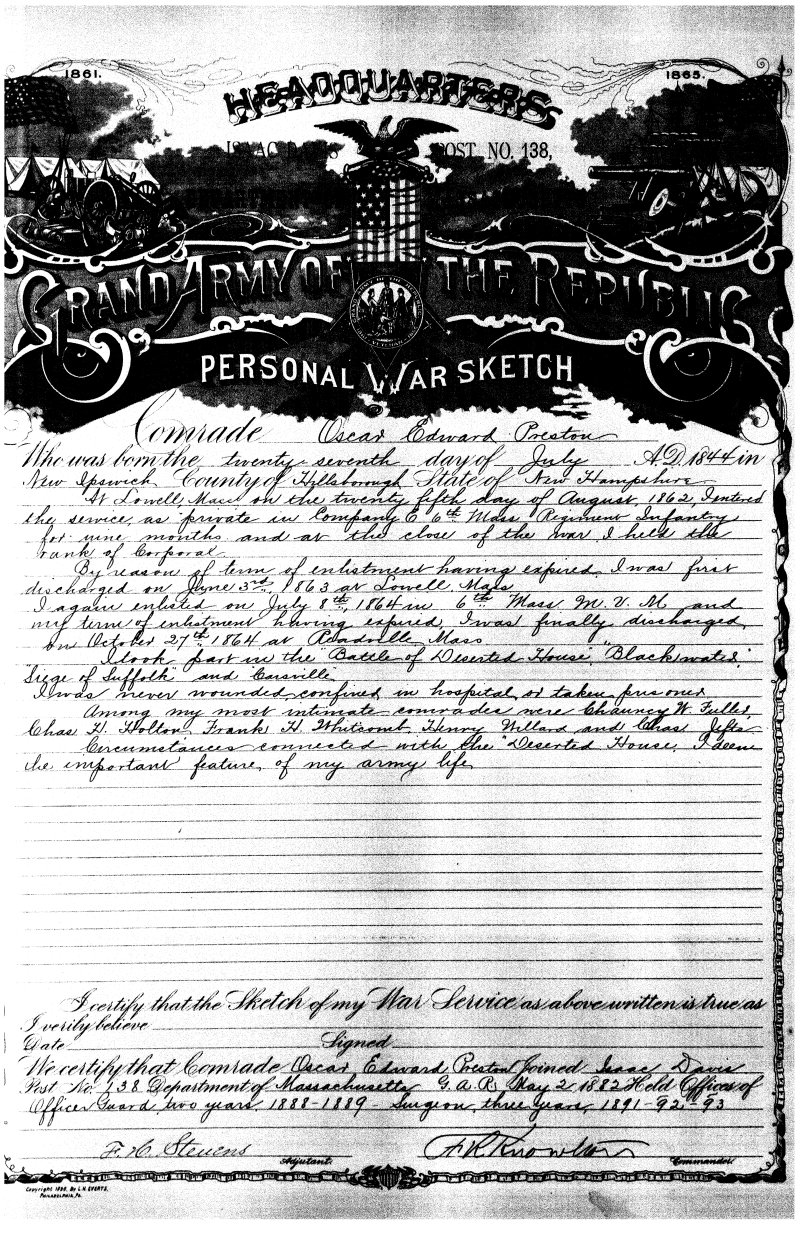 1861.
1865.
HEADQUARTERS
ISAAC DAVIS POST. NO. 138,
DEPARTMENT
GRAND ARMY OF THE REPUBLIC
PERSONAL WAR SKETCH
Comrade Oscar Edward Preston
Who was born the twenty-seventh day of July A.D. 1844 in
New Ipswich County of Hillsborough State of New Hampshire
At Lowell, Mass on the twenty fifth day of August, 1862, I entered
the service, as private in Company E 6th Mass Regiment Infantry
for nine months and at the close of the war I held the
rank of Corporal
By reason of term of enlistment having expired, I was first
discharged on June 3rd, 1863 at Lowell, Mass
I again enlisted on July 8th, 1864 in 6th Mass M. V. M and
my term of enlistment having expired, I was finally discharged
on October 27th 1864 at Readville Mass
I took part in the "Battle of Deserted House", "Blackwater",
"Siege of Suffolk" and Carsville"
I was never wounded, confined in hospital, or taken prisoner
Among my most intimate comrades were Chauncy W. Fuller,
Chas H. Holton, Frank H. Whitcomb, Henry Willard and Chas Jefts
Circumstances connected with the "Deserted House, I deem
the important feature of my army life
I certify that the Sketch of my War Service as above written is true as
I verily believe
Date Signed
We certify that Comrade Oscar Edward Preston Joined Isaac Davis
Post No. 138 Department of Massachusetts G. A. R. May 2 1882 Held Offices of
Officer Guard, two years, 1888-1889 - Surgeon, three years, 1891-92-93
F. H. Stevens
Adjutant.
Knowlton
Commander
Copyright 1890. By L.H. EVERTS,
PHILADELPHIA, PA.